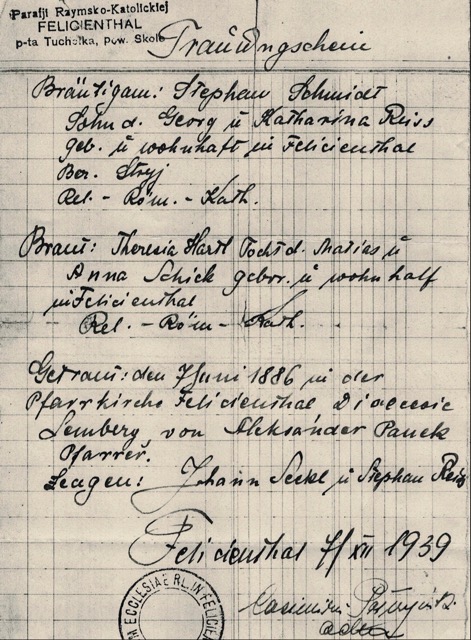 Parafji Rzymsko-Katolickiej
FELICIENTHAL
p-ta Tucholka, pow. Skole
Trauungschein
Bräutigam: Stephan Schmidt
Sohn d. Georg u Katharina Reiss
geb. u wohnhaft in Felicienthal
Ber. Stryj
Rel. - Röm. - Kath.
Braut: Theresia Hartl Tocht d. Matias u
Anna Schick gebor. u wohnhaft
in Felicienthal
Rel. - Röm - Kath.
Getraut: den 7 Juni 1886 in der
Pfarrkirche Felicienthal Diaecesie
Lemberg von Aleksander Panek
Pfarrer.
Zeugen: Johann Seckl u Stephan Reiss
Felicienthal 7/XII 1939
Casimirus
M ECCLESIAE RL. IN FELICIEN